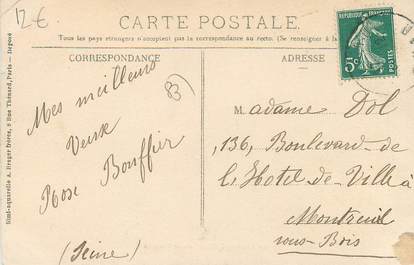 12€
CARTE POSTALE.
Tous les pays étrangers n'acceptent pas la correspondance au recto. (Se renseigner à
CORRESPONDANCE
ADRESSE
REPUBLIQUE FRANÇAISE
5c
83
Mes meilleurs
Vœux
Rose Bouffier
(Seine)
Madame Dol
136, Boulevard de
l'Hotel-de-Ville à
Montreuil
sous-Bois
Simi-aquarelle A. Breger frères, 9 Rue Thénard, Paris